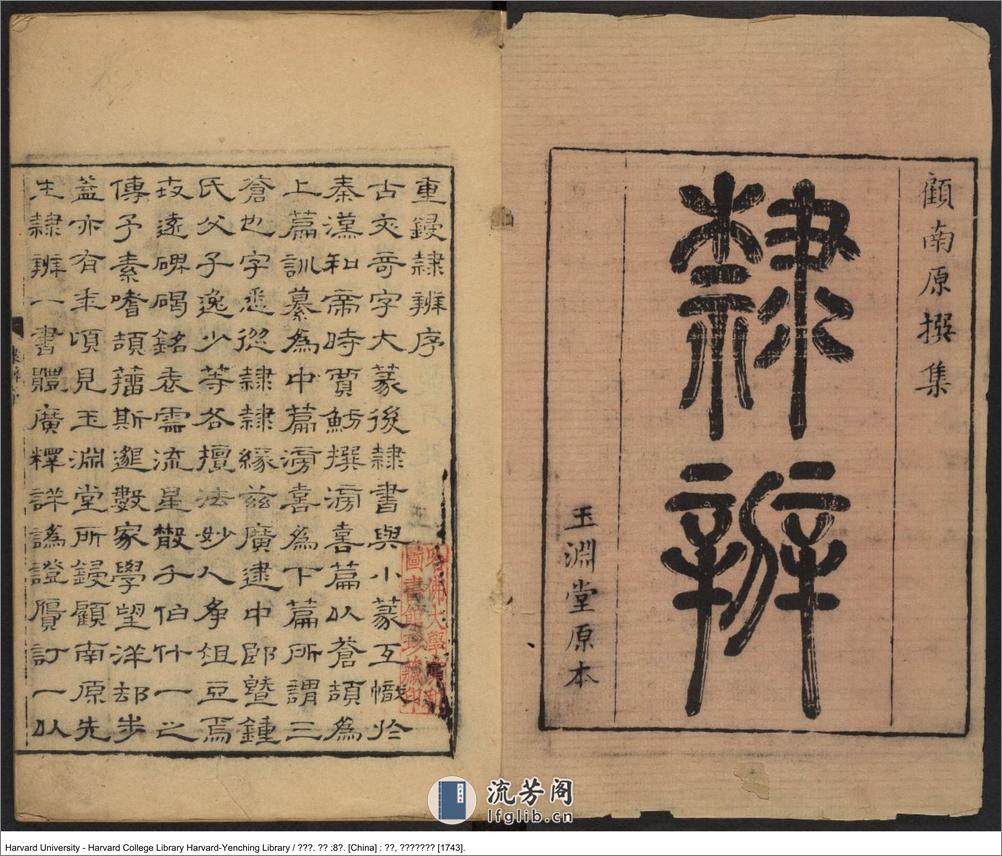 顧南原撰集
隸辨
玉淵堂原本
重鋟隸辨序
古文奇字大篆後隸書與小篆互幟於
秦漢和帝時賈魴撰滂喜篇以蒼頡為
上篇訓纂為中篇滂喜為下篇所謂三
蒼也字悉從隸隸緣茲廣逮中郎暨鍾
氏父子逸少等各擅法妙人爭俎豆焉
遠碑碣銘表流星散千伯什一之
傳予素嗜頡籀斯邈數家學望洋却步
蓋亦有年頃見玉淵堂所鋟顧南原先
生隸辨一書體廣釋詳譌證贗訂一以
哈佛大學漢和
圖書館珍藏印
流芳阁
lfglib.cn
Harvard University - Harvard College Library Harvard-Yenching Library / ???. ?? :8?. [China] : ??, ??????? [1743].